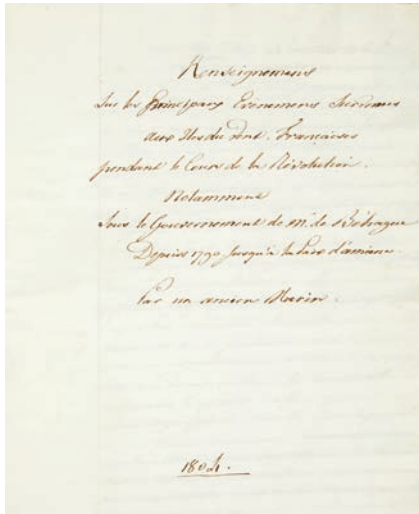 Renseignemens
Sur les Principaux Evénemens Survenus
aux Iles du Vent Françaises
pendant le Cours de la Révolution.
Notamment
Sous le Gouvernement de Mr. de Béhague
Depuis 1790 jusqu'à la Paix d'amiens
Par un ancien Marin.
1804.